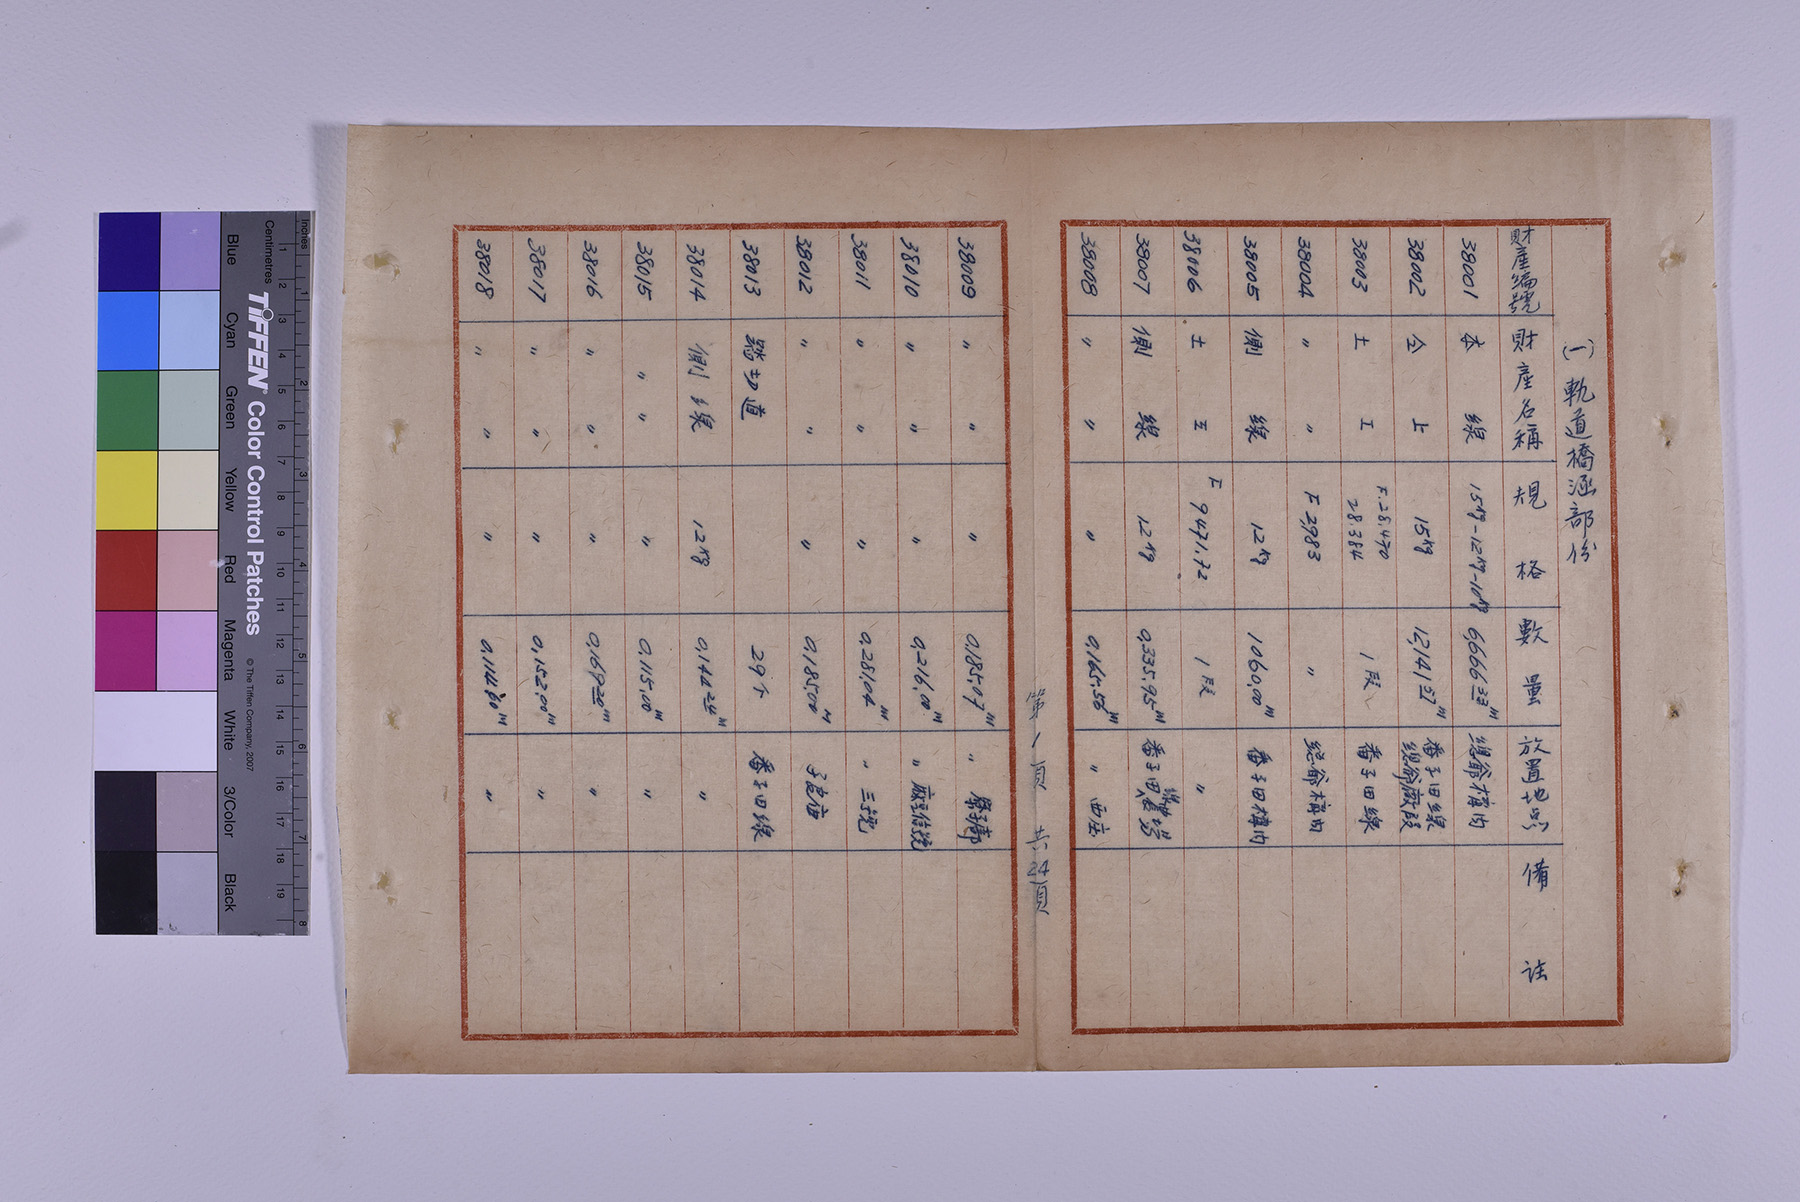 (一) 軌道橋涵部份
財產編號 財產名稱 規格 數量 放置地點 備註
38001 本線 15kg-12kg-10kg 6,666.33m 總爺構內
38002 仝上 15kg 12,141.57m 番子田線 總爺廠段
38003 土工 F.28.470 28.384 1段 番子田線
38004 〃 〃 F 2,983 〃 總爺構內
38005 側線 12kg 1060.00m 番子田構內
38006 土工 F 9471.72 1段 〃
38007 側線 12kg 0,335.95m 番子田
38008 〃 〃 〃 0,165.56m 〃
第1頁 共24頁
38009 〃 〃 〃 0,185.07m 〃
38010 〃 〃 〃 0,216.00m 〃
38011 〃 〃 〃 0,281.04m 〃 三號
38012 〃 〃 〃 0,185.00m
38013 踏切道 29个 番子田線
38014 側線 12kg 0,144.24m 〃
38015 〃 〃 〃 0,115.00m 〃
38016 〃 〃 〃 0,169.20m 〃
38017 〃 〃 〃 0,152.00m 〃
38018 〃 〃 〃 0,114.80m 〃
Inches
Centimetres
1 2 3 4 5 6 7 8
1 2 3 4 5 6 7 8 9 10 11 12 13 14 15 16 17 18 19
TIFFEN® Color Control Patches
© The Tiffen Company, 2007
Blue Cyan Green Yellow Red Magenta White 3/Color Black